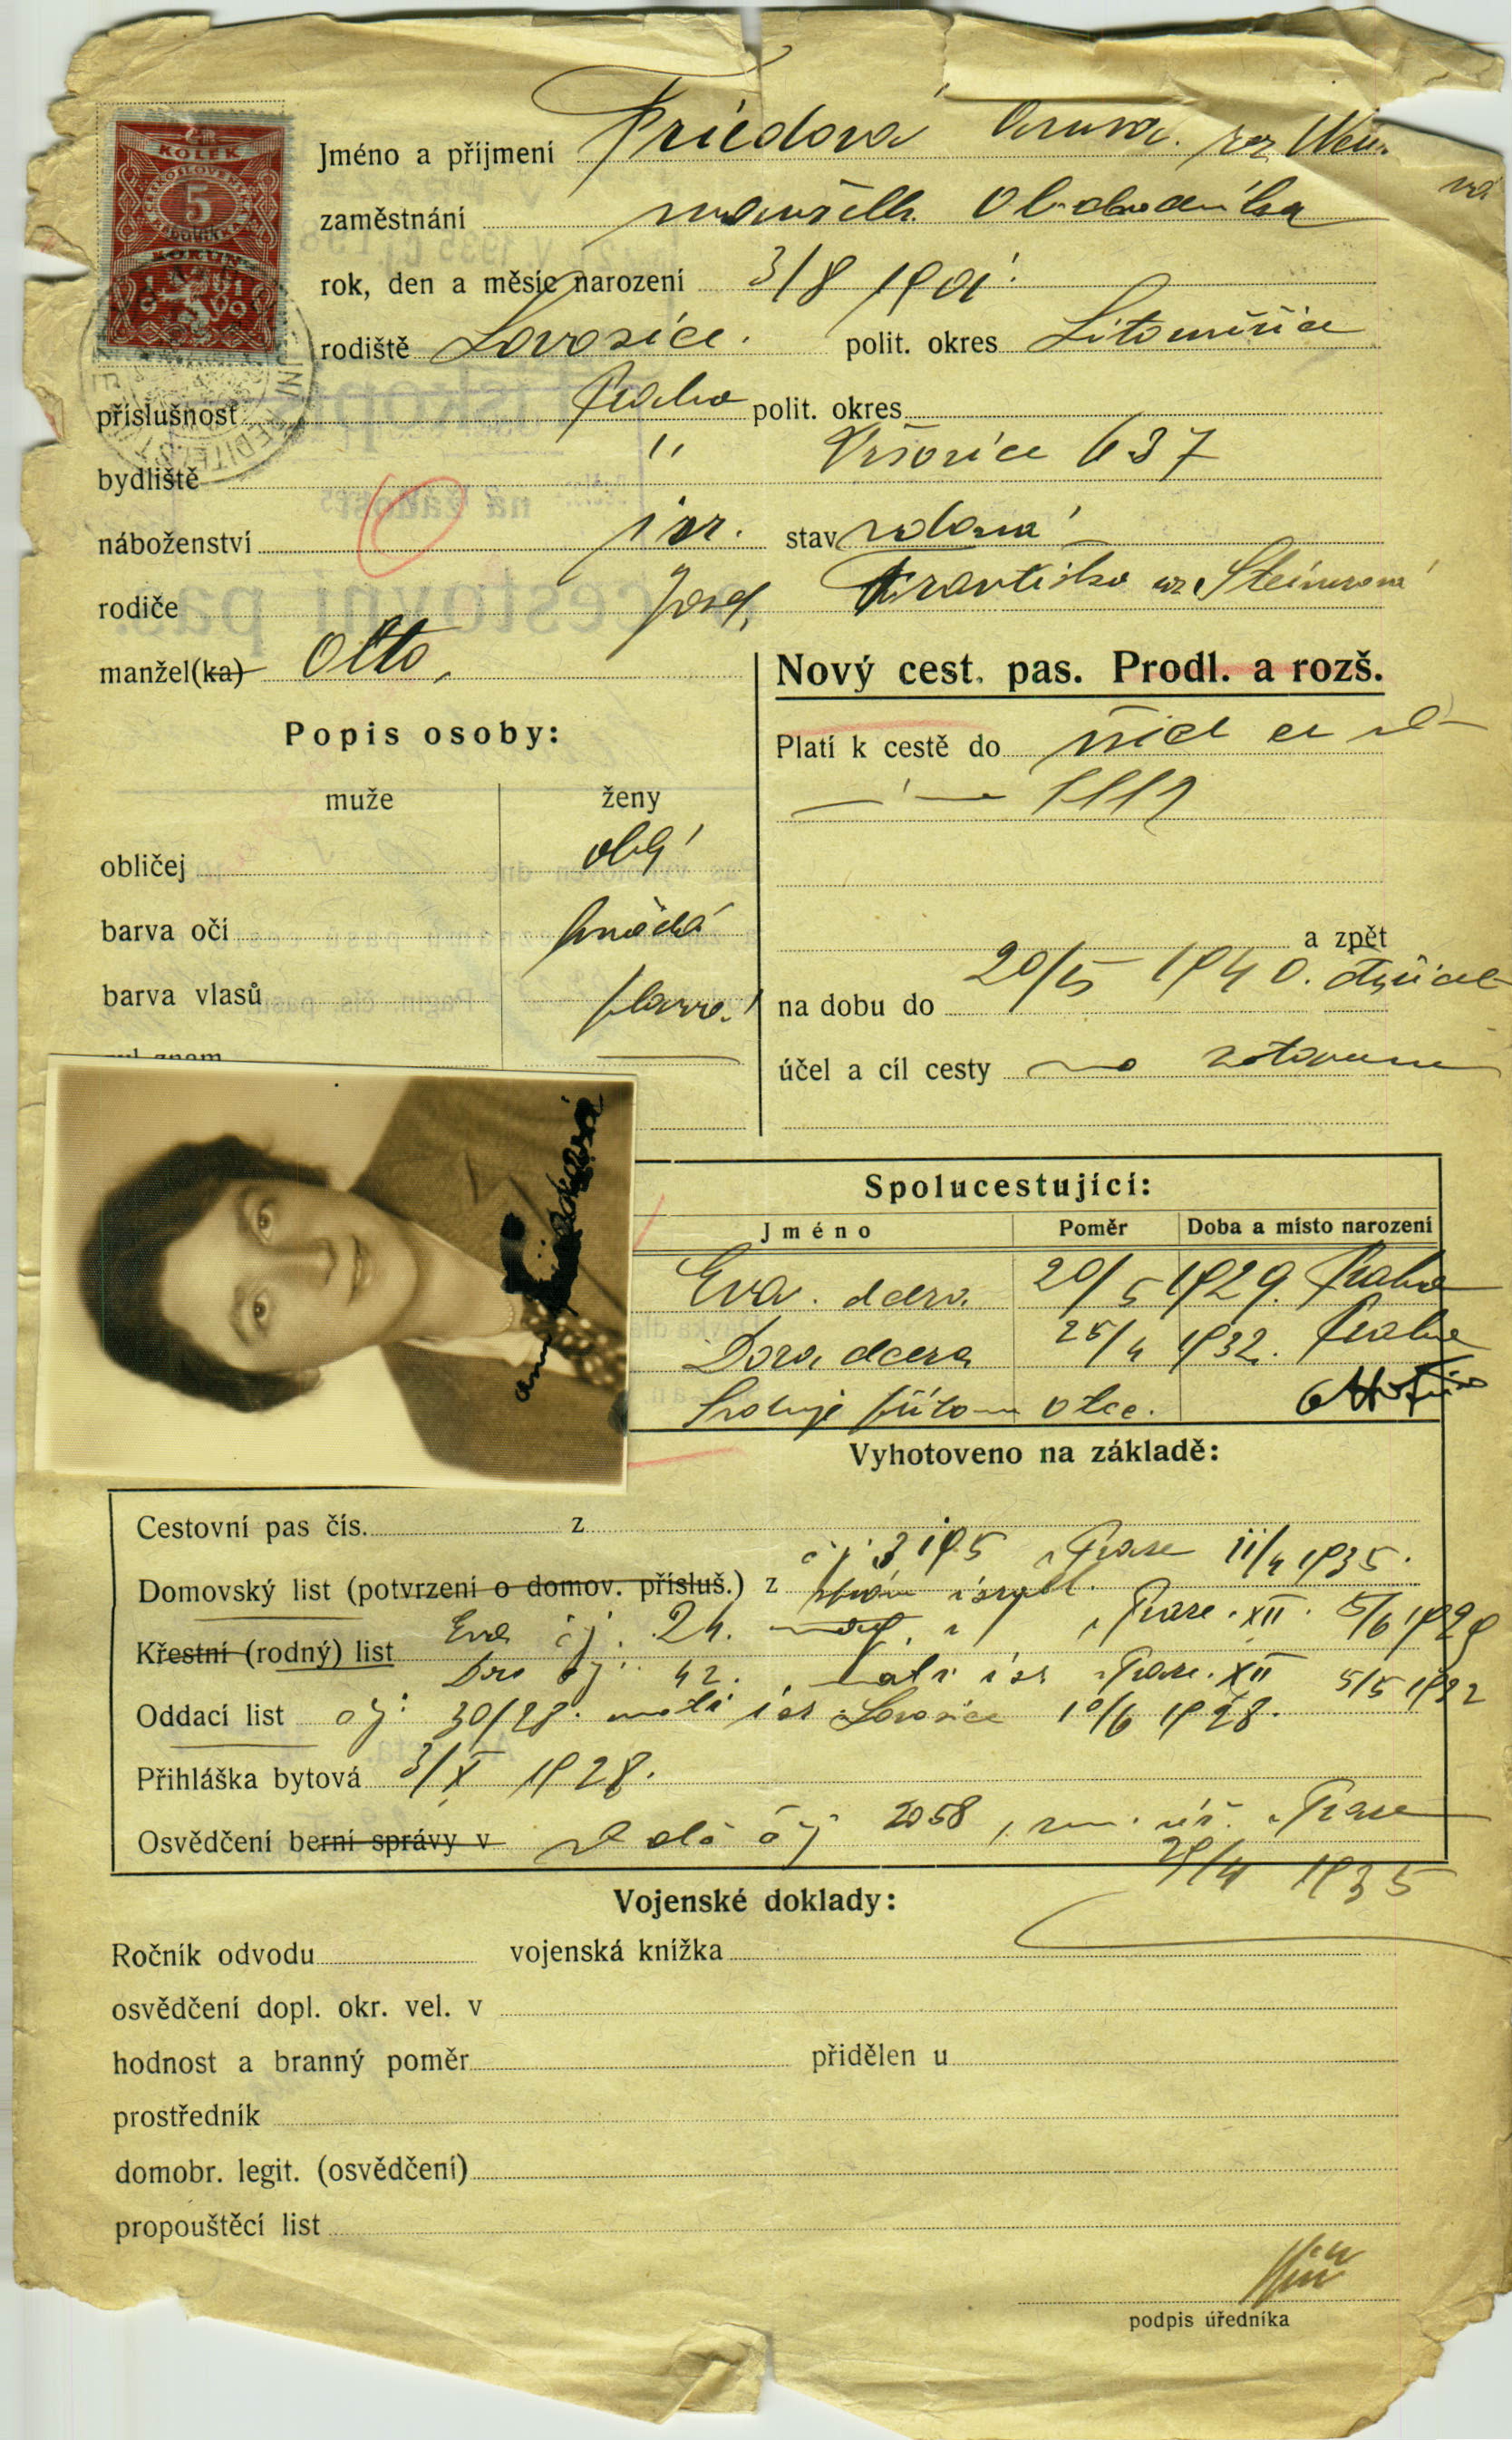 KOLEK
5
KORUN
Jméno a příjmení Friedová Anna. roz.
zaměstnání manželk. obchodníka
rok, den a měsíc narození 3/8 1901.
rodiště Lovosice. polit. okres Litoměřice
příslušnost Praha polit. okres
bydliště " Vršovice 637
náboženství isr. stav vdaná
rodiče Josef, Františka roz. Steinerová
manžel(ka) Otto,
Nový cest. pas. Prodl. a rozš.
Popis osoby:
Platí k cestě do
muže ženy
obličej oblý
barva očí hnědá
a zpět
barva vlasů plavé
na dobu do 20/5 1940.
účel a cíl cesty na zotavenou
Spolucestující:
Jméno Poměr Doba a místo narození
Eva. dcera. 20/5 1929. Praha
Dora dcera 25/4 1932. Praha
Svoluje přítomn otce.
Vyhotoveno na základě:
Cestovní pas čís. z
čj 3195 v Praze 11/4 1935.
Domovský list (potvrzení o domov. přísluš.) z
Eva čj. 24. v Praze. XII. 5/6 1929
Křestní (rodný) list
Dora čj. 42. matr. isr v Praze. XII 5/5 1932
Oddací list čj. 30/28. matr. isr Lovosice 10/6 1928.
Přihláška bytová 3/X 1928.
Osvědčení berní správy v čj 2058, v Praze
29/4 1935
Vojenské doklady:
Ročník odvodu vojenská knížka
osvědčení dopl. okr. vel. v
hodnost a branný poměr přidělen u
prostředník
domobr. legit. (osvědčení)
propouštěcí list
podpis úředníka